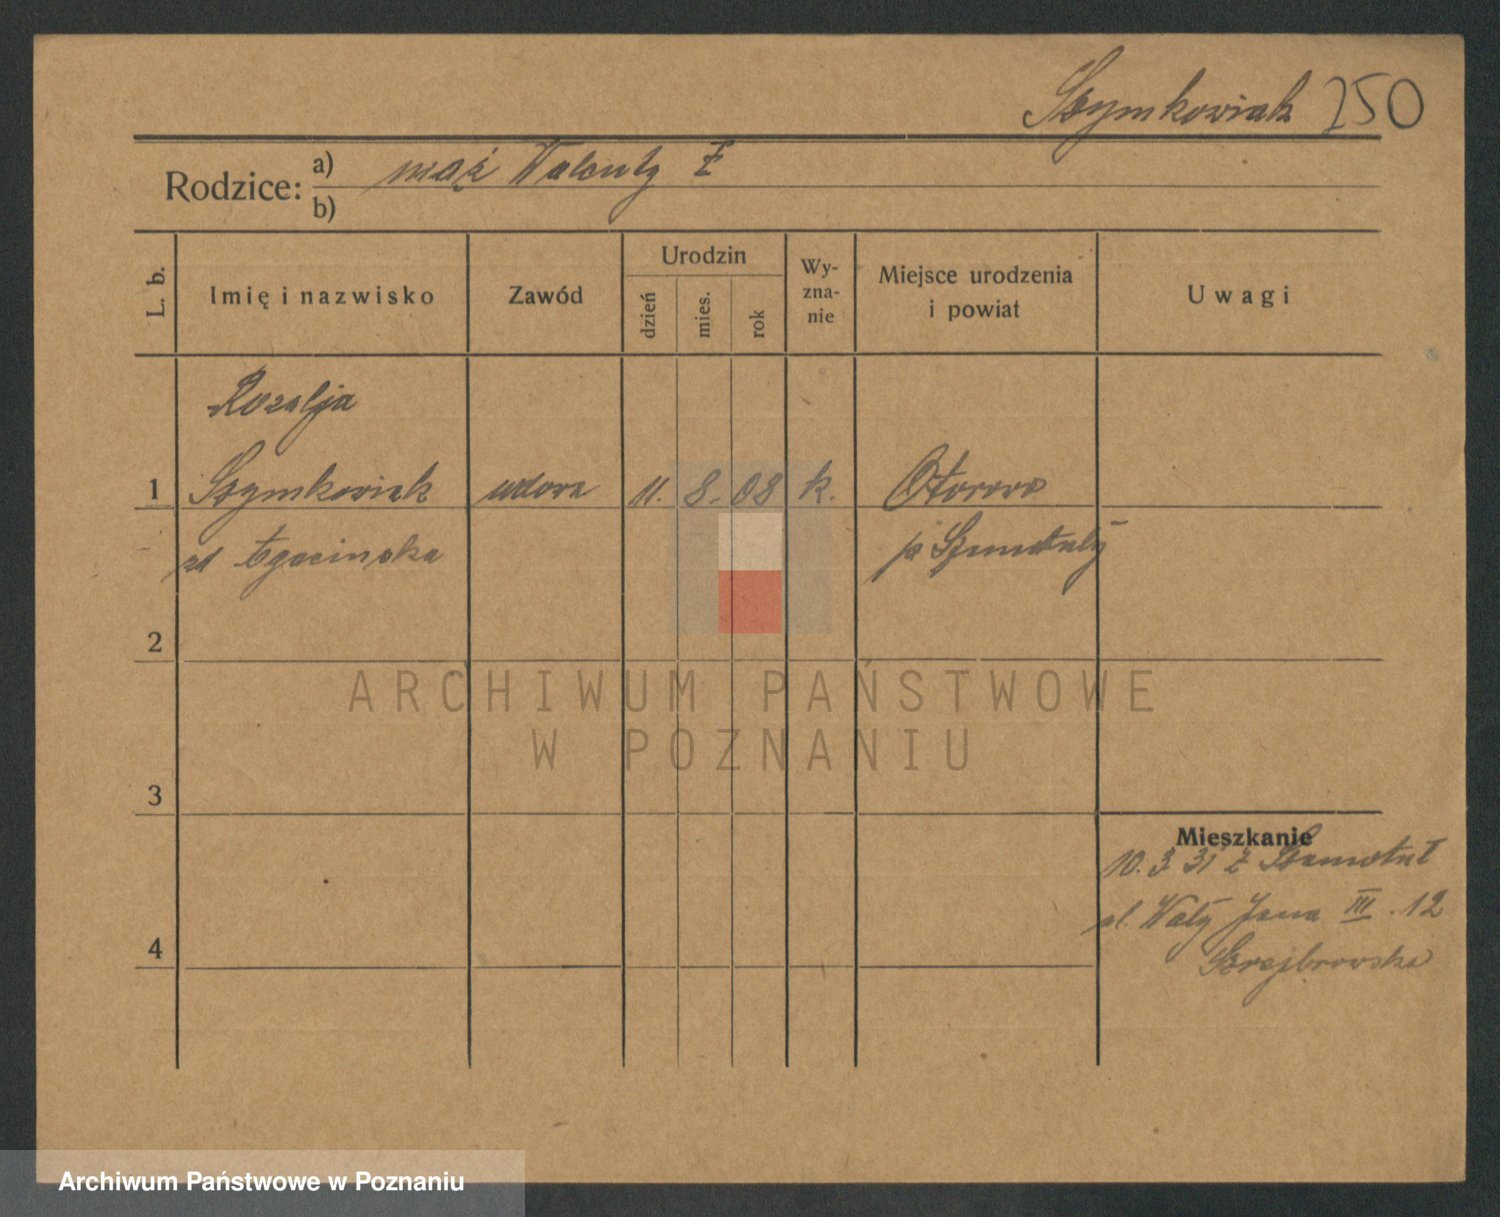 Szymkowiak 250
Rodzice: a) mąż Walenty Ł
b)
L. b. Imię i nazwisko Zawód Urodzin dzień mies. rok Wyznanie Miejsce urodzenia i powiat Uwagi
Rozalja
1 Szymkowiak wdowa 11. 8. 08 k. Otorowo
zd p. Szamotuły
2
ARCHIWUM PAŃSTWOWE
W POZNANIU
3
Mieszkanie
10. 3. 31 z Szamotuł
ul. Wały Jana III. 12
4
Archiwum Państwowe w Poznaniu